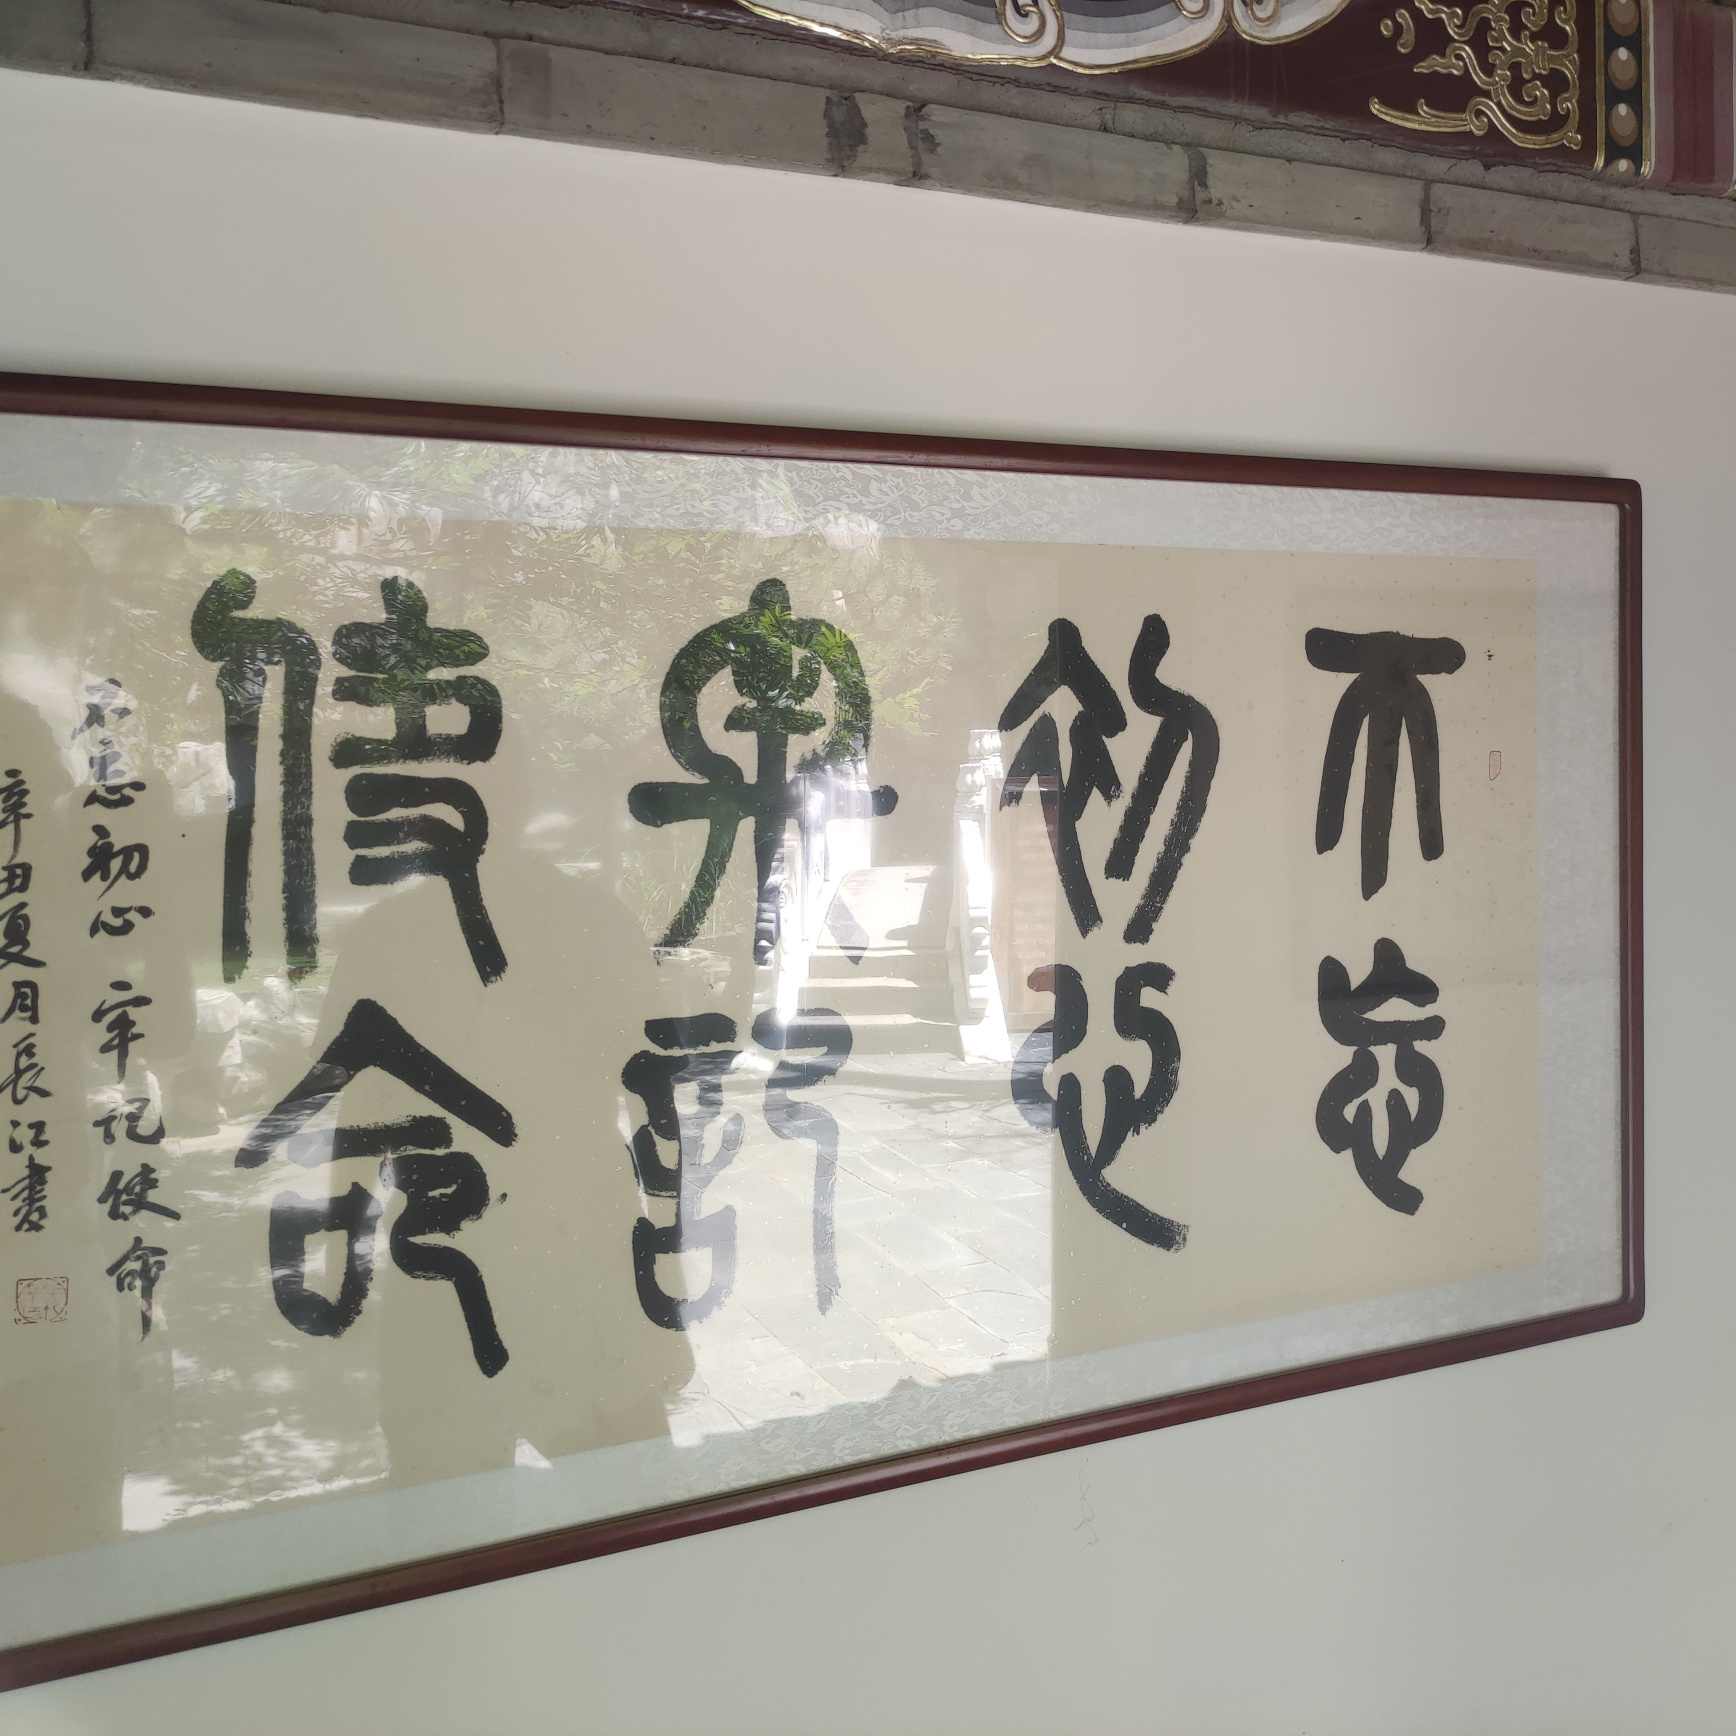 不忘
初心
牢記
使命
不忘初心 牢记使命
辛丑夏月長江書